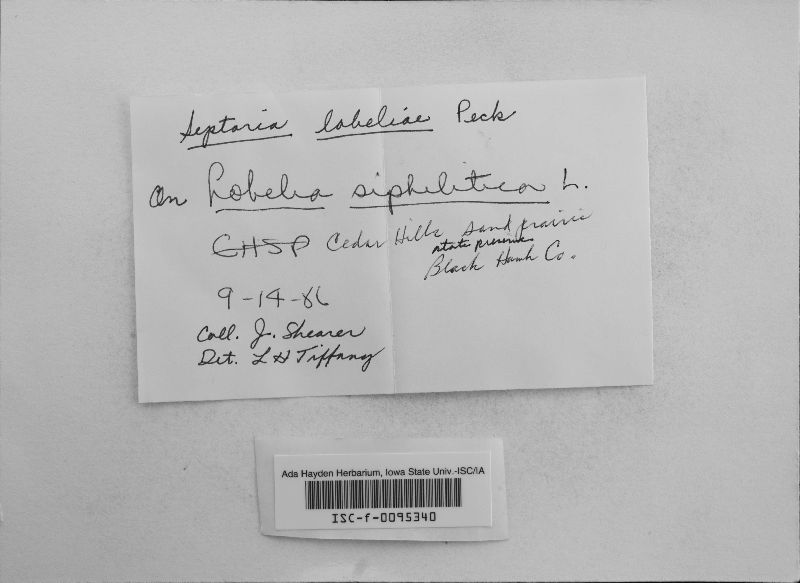 Septoria lobeliae Peck
On Lobelia siphilitica L.
CHSP Cedar Hills sand prairie
state preserve
Black Hawk Co.
9-14-86
Coll. J. Shearer
Det. L H Tiffany
Ada Hayden Herbarium, Iowa State Univ.-ISC/IA
ISC-f-0095340